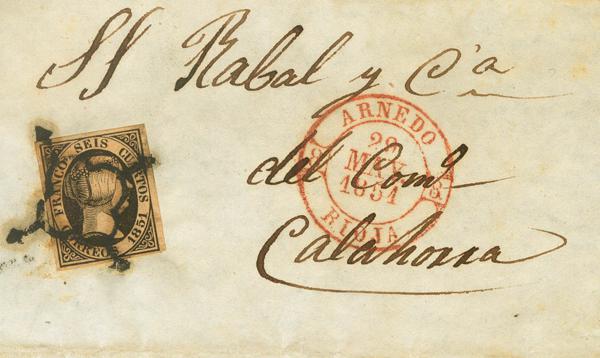 SS Rabal y C.ª
del Com.º
Calahorra
ARNEDO
29
MAY
1851
RIOJA
FRANCO SEIS CUARTOS
CORREOS 1851